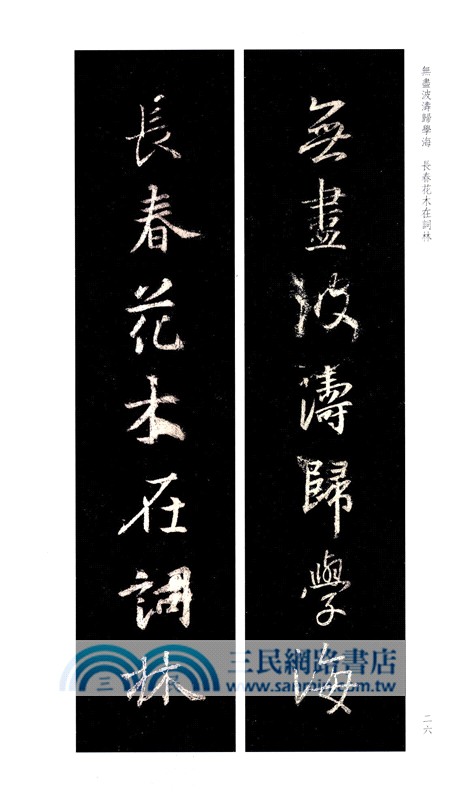 無盡波濤歸學海　長春花木在詞林
無盡波濤歸學海
長春花木在詞林
三民網路書店
www.sanmin.com.tw
二六